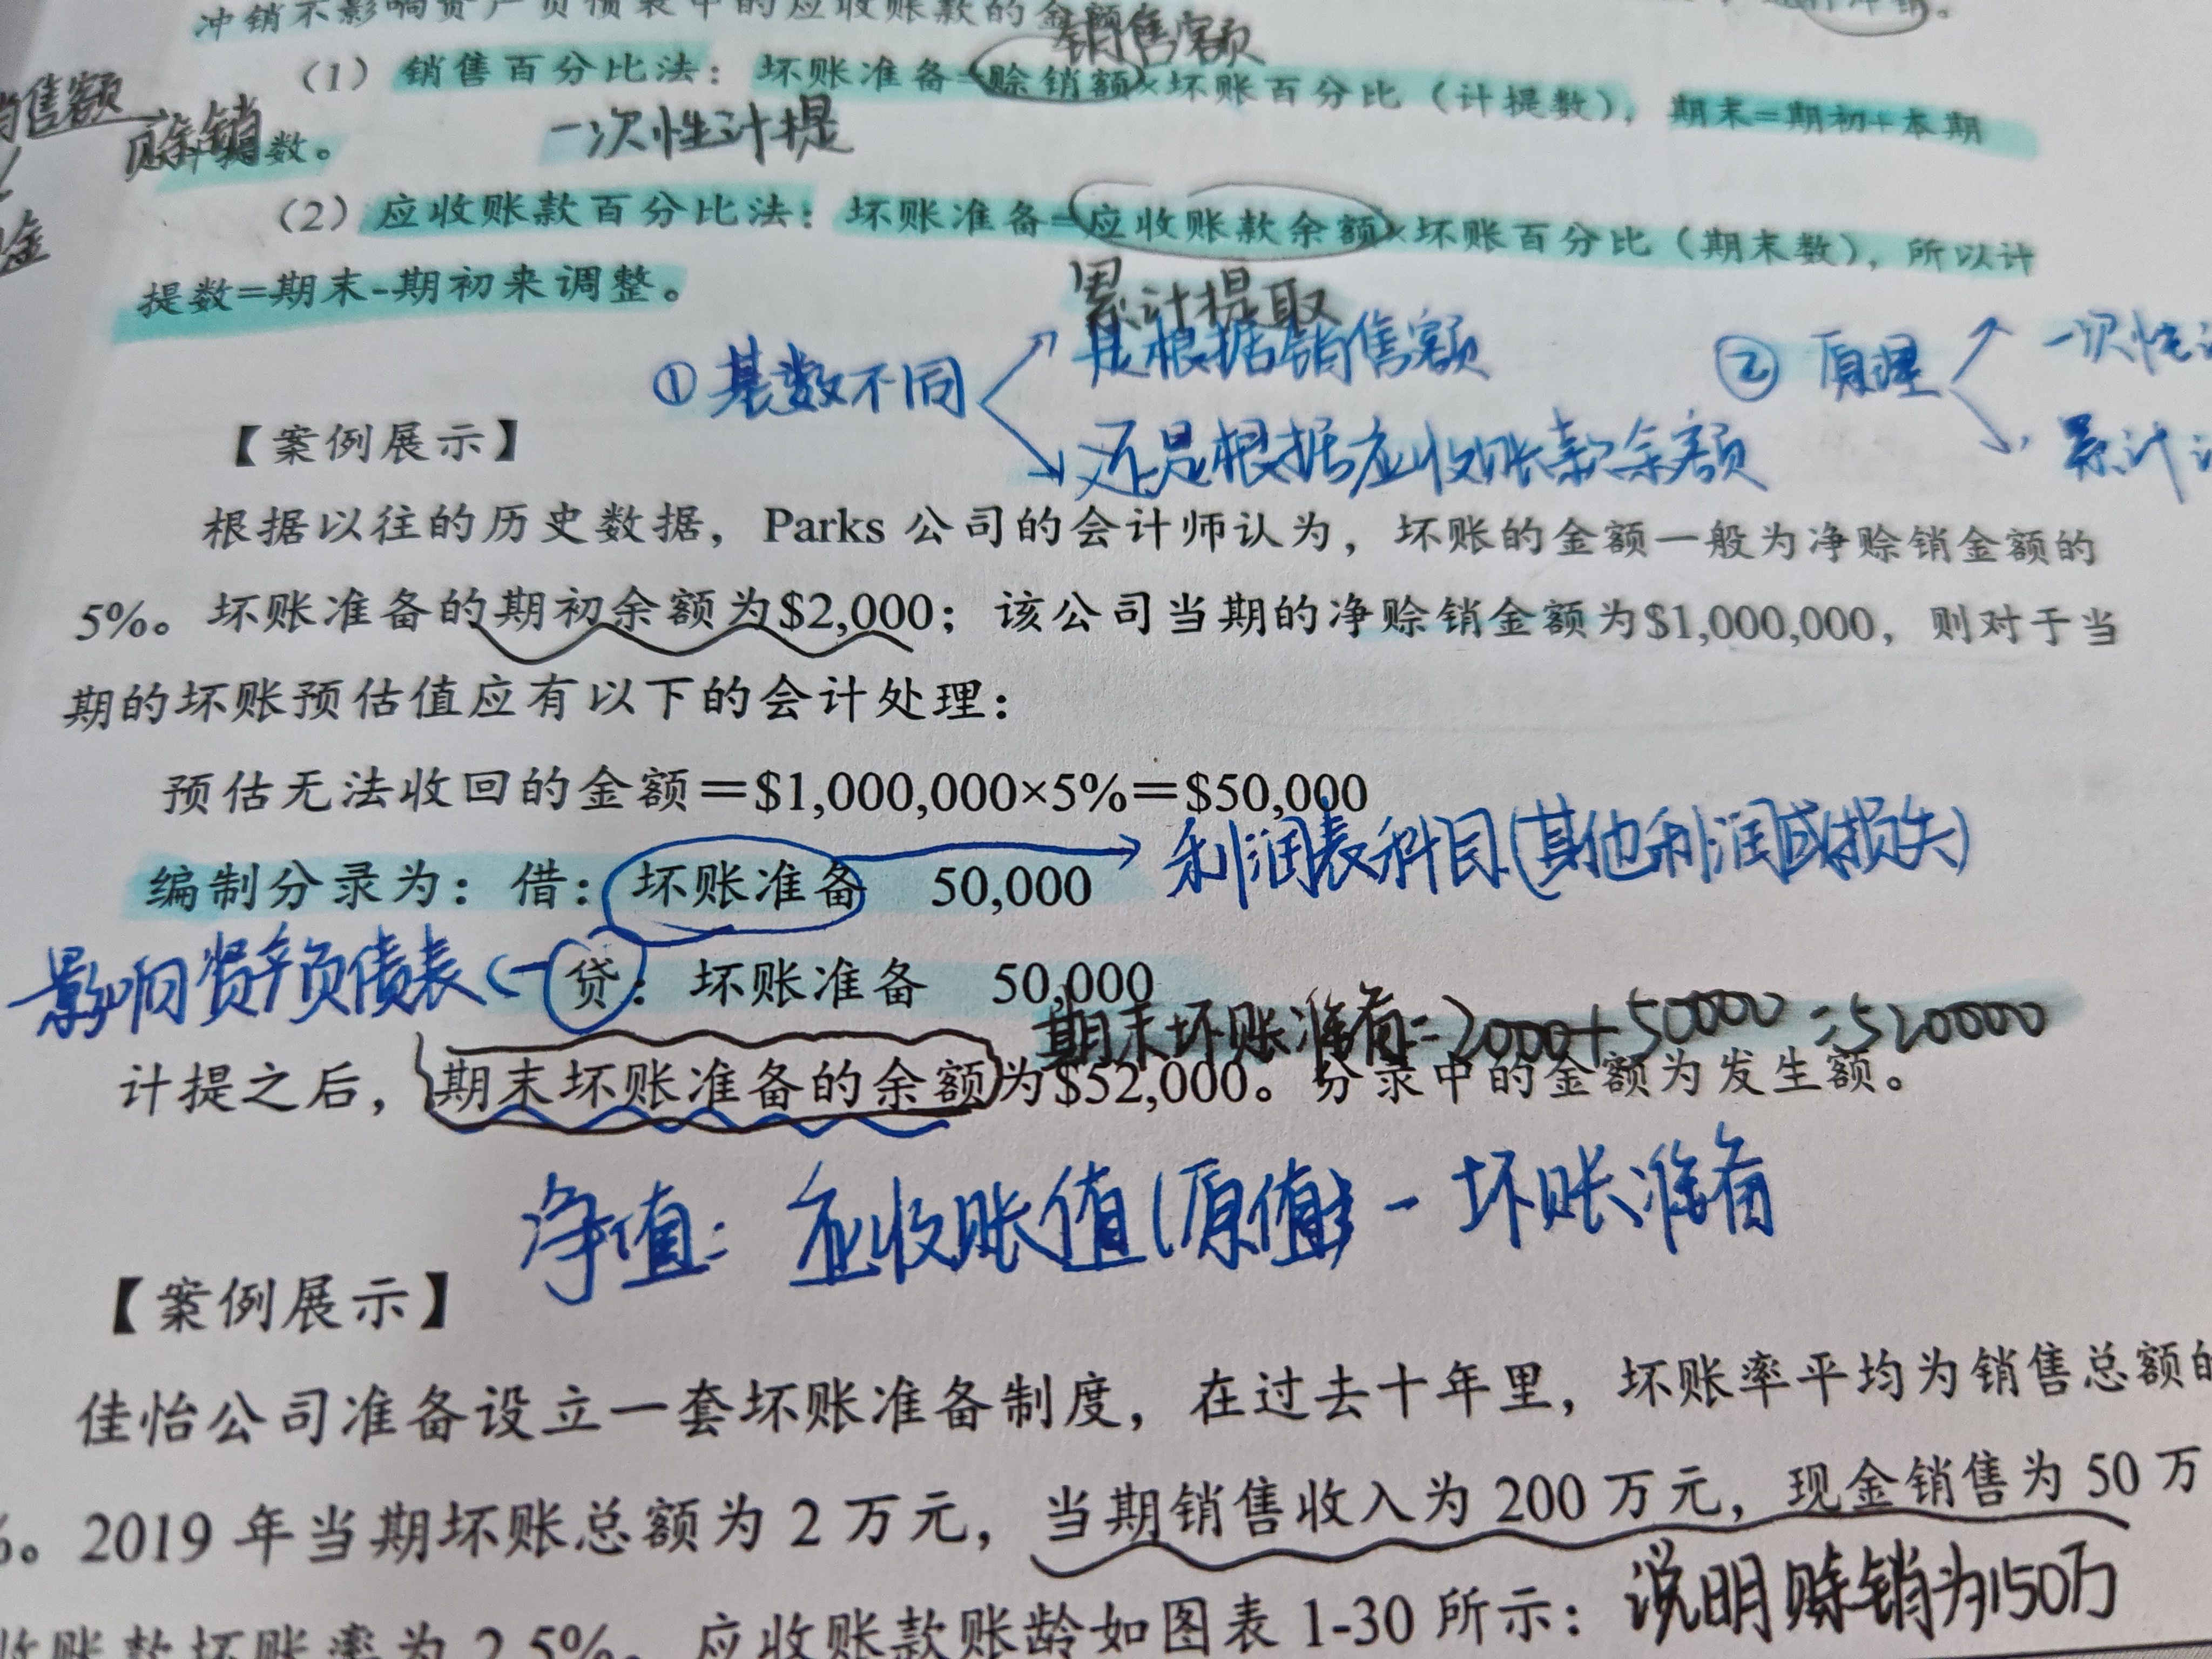 冲销不影响资产负债表中的应收账款的金额
销售额
(1) 销售百分比法：坏账准备=赊销额×坏账百分比（计提数），期末=期初+本期
售额
赊销
计提数。
一次性计提
(2) 应收账款百分比法：坏账准备=应收账款余额×坏账百分比（期末数），所以计
金
提数=期末-期初来调整。
累计提取
①基数不同
是根据销售额
还是根据应收账款余额
② 原理
一次性
累计
【案例展示】
根据以往的历史数据，Parks 公司的会计师认为，坏账的金额一般为净赊销金额的
5%。坏账准备的期初余额为$2,000；该公司当期的净赊销金额为$1,000,000，则对于当
期的坏账预估值应有以下的会计处理：
预估无法收回的金额＝$1,000,000×5%＝$50,000
编制分录为：借：坏账准备 50,000
利润表科目(其他利润或损失)
影响资产负债表
贷：坏账准备 50,000
期末坏账准备=2000+50000=520000
计提之后，期末坏账准备的余额为$52,000。分录中的金额为发生额。
净值：应收账值(原值) - 坏账准备
【案例展示】
佳怡公司准备设立一套坏账准备制度，在过去十年里，坏账率平均为销售总额的
%。2019 年当期坏账总额为 2 万元，当期销售收入为 200 万元，现金销售为 50 万
收账款坏账率为 2.5%。应收账款账龄如图表 1-30 所示：
说明赊销为150万